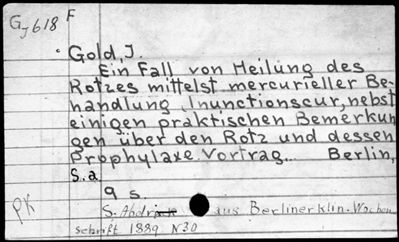 GJ618 F
Gold, J.
Ein Fall von Heilung des
Rotzes mittelst mercurieller Be-
handlung, Inunctionscur, nebst
einigen praktischen Bemerkun
gen über den Rotz und dessen
Prophylaxe. Vortrag... Berlin,
s.a
9 s.
S. Abdr aus Berliner klin. Wochen
schrift 1889 N30
PK